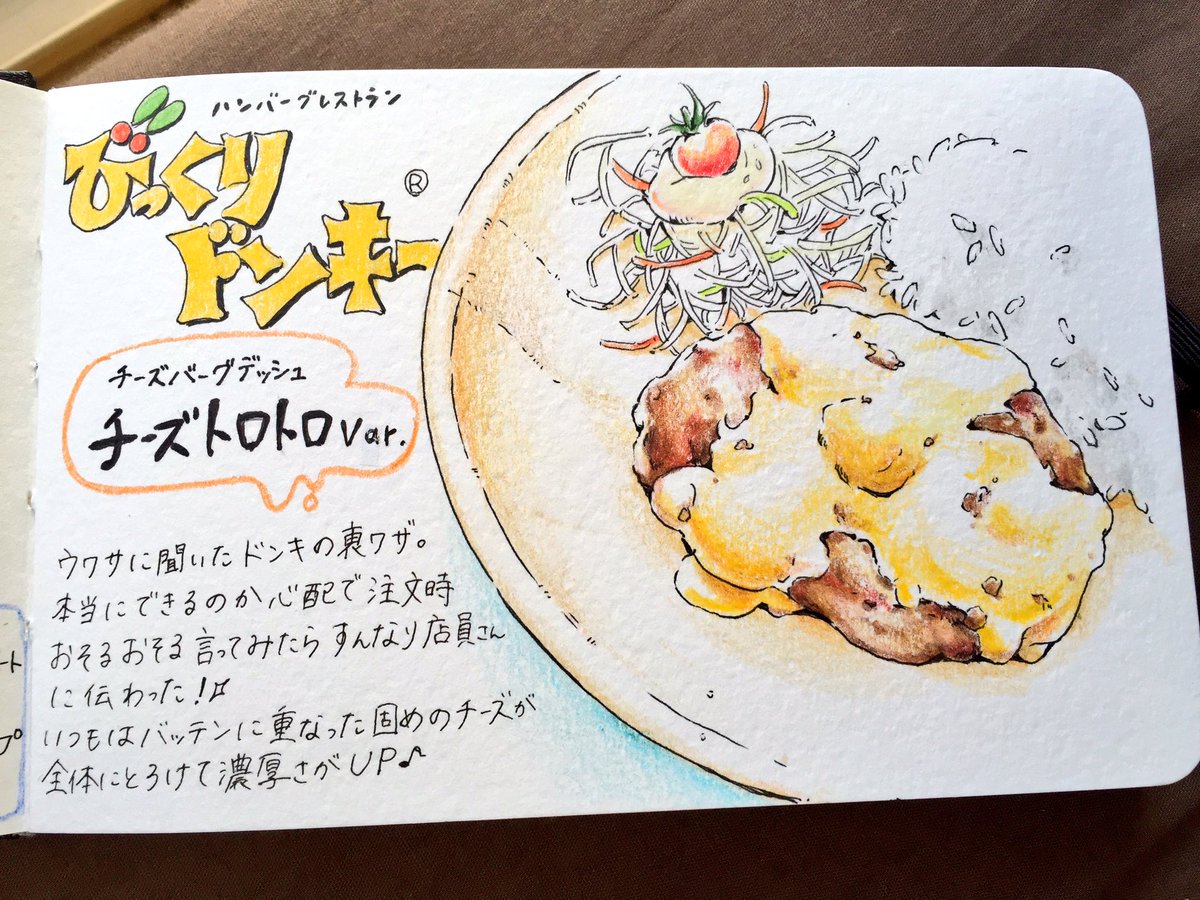 ハンバーグレストラン
びっくり
ドンキー
®
チーズバーグデッシュ
チーズトロトロVar.
ウワサに聞いたドンキの裏ワザ。
本当にできるのか心配で注文時
おそるおそる言ってみたらすんなり店員さん
に伝わった!!
いつもはバッテンに重なった固めのチーズが
全体にとろけて濃厚さがUP♪
ート
プ